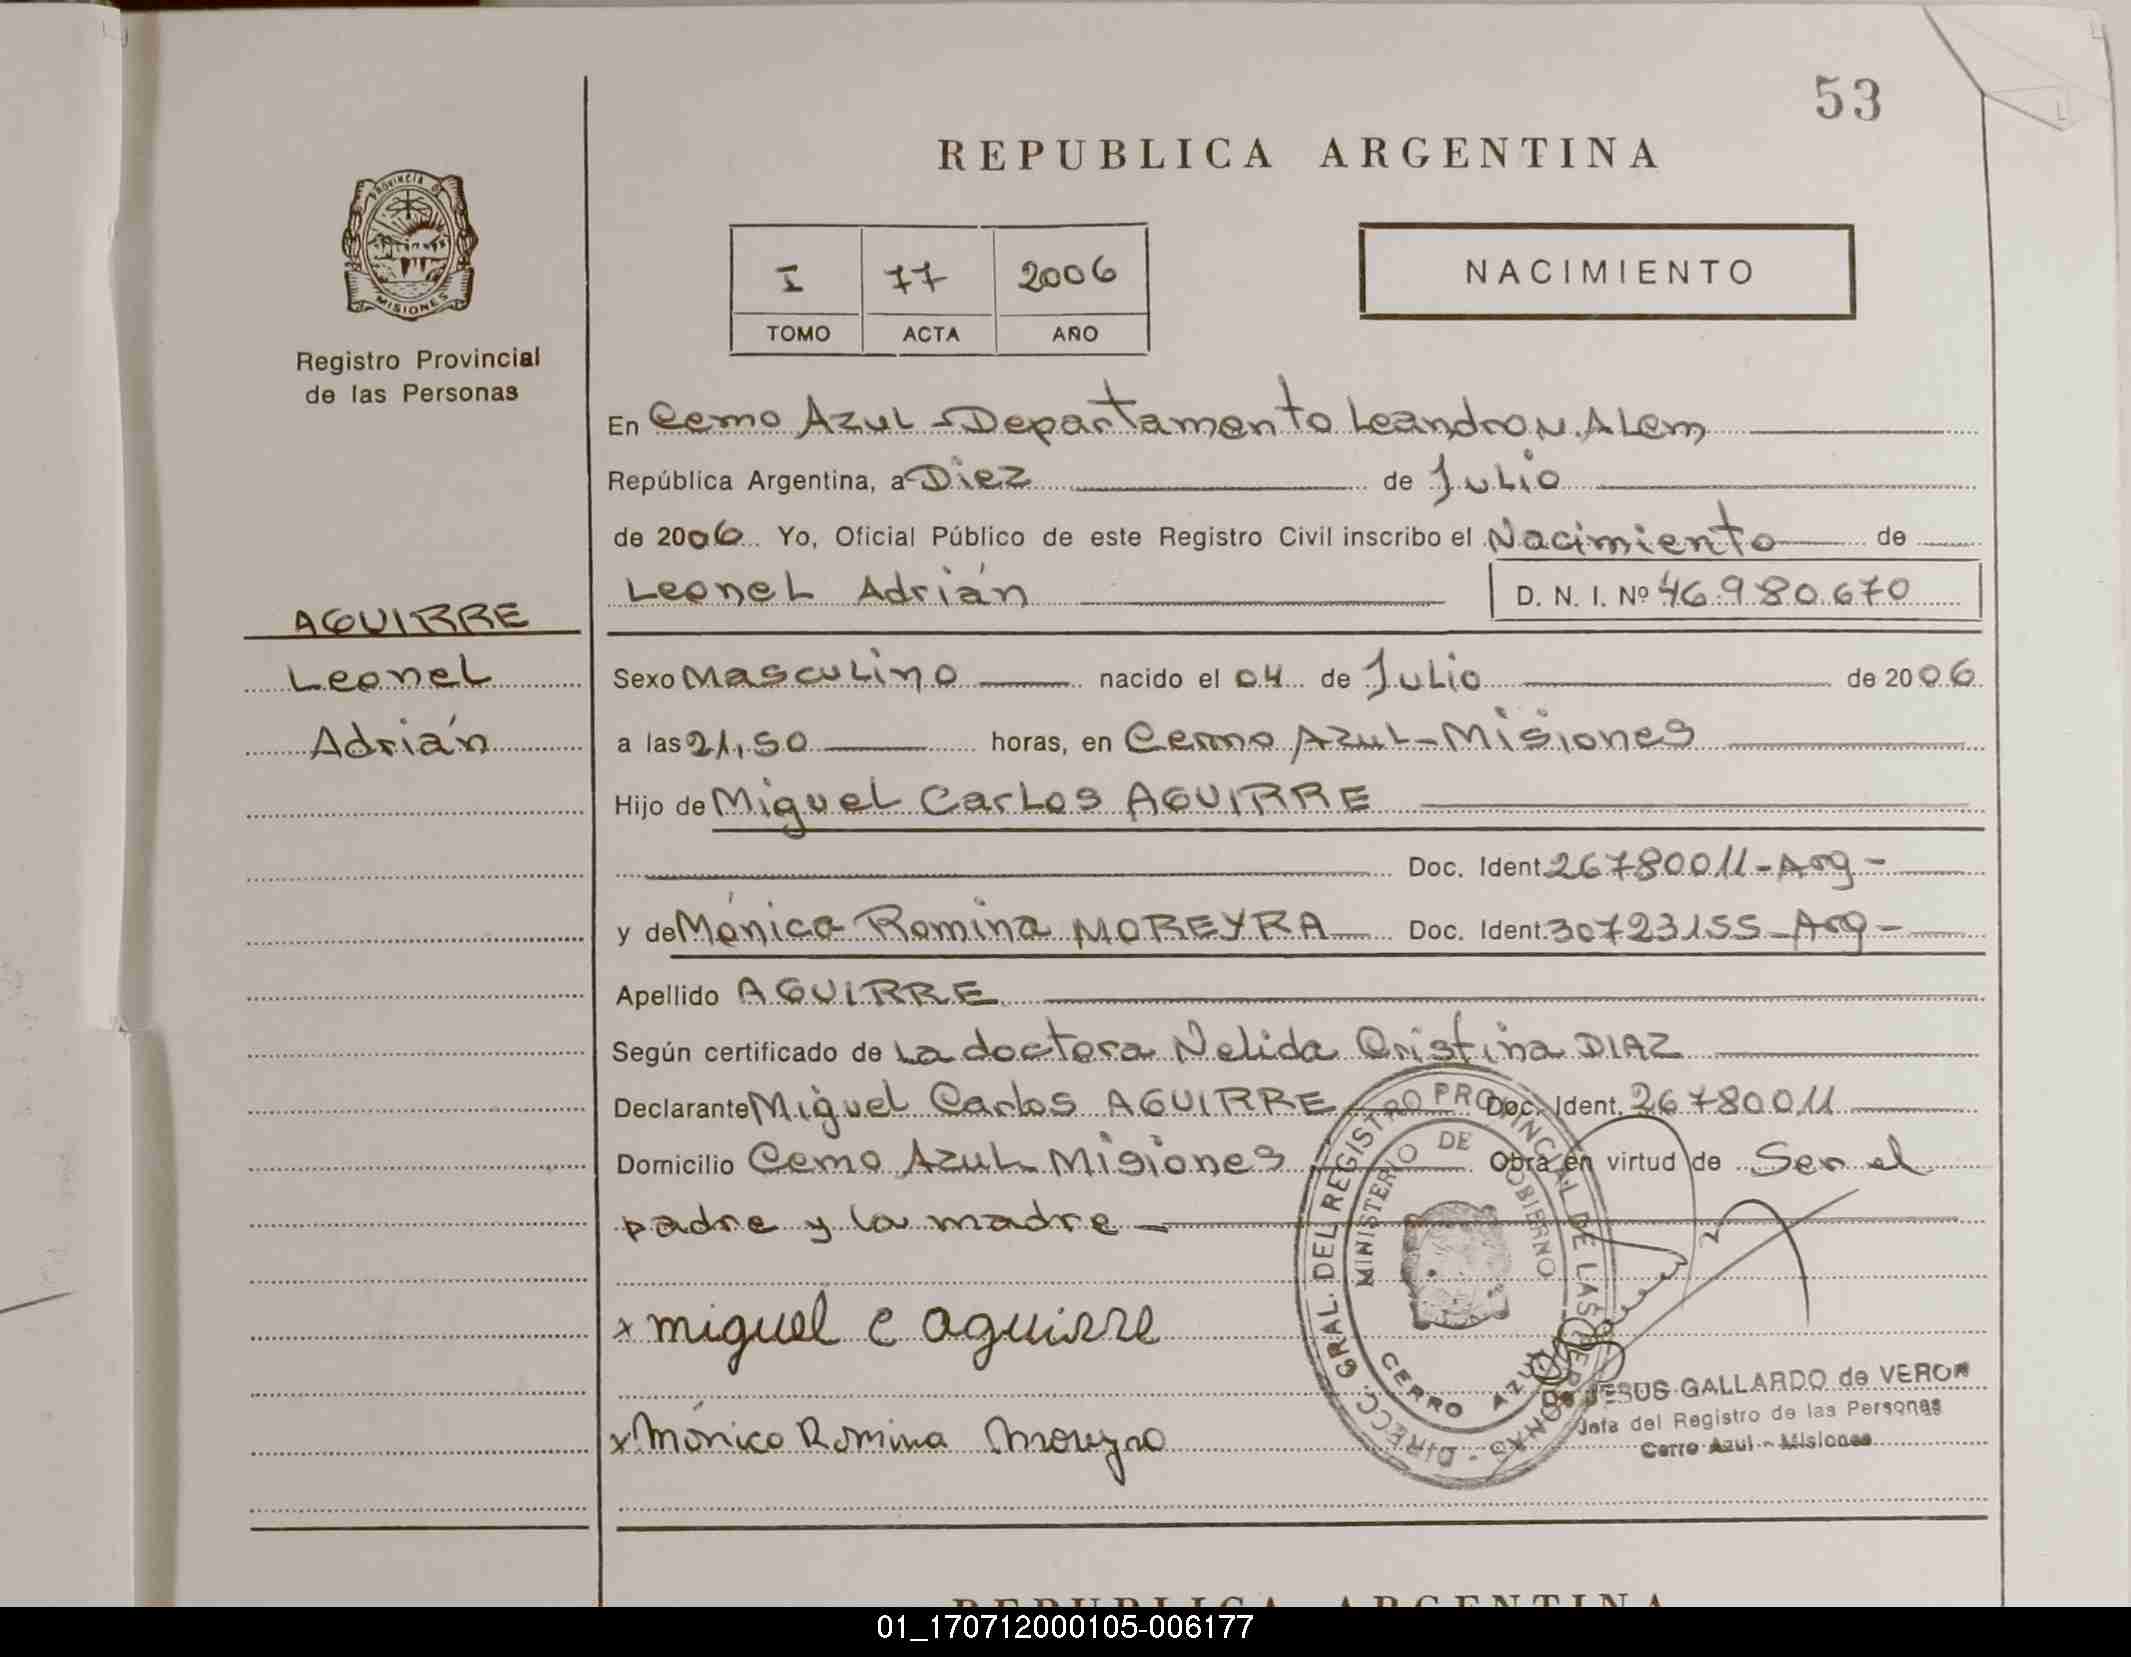 53
REPUBLICA ARGENTINA
PROVINCIA DE
MISIONES
Registro Provincial
de las Personas
I 77 2006
TOMO ACTA AÑO
NACIMIENTO
En Cerro Azul - Departamento Leandro N. Alem
República Argentina, a Diez de Julio
de 2006 Yo, Oficial Público de este Registro Civil inscribo el Nacimiento de
Leonel Adrián D. N. I. Nº 46.980.670
AGUIRRE
Leonel
Adrián
Sexo Masculino nacido el 04 de Julio de 2006
a las 21,50 horas, en Cerro Azul - Misiones
Hijo de Miguel Carlos AGUIRRE
Doc. Ident. 26780011 - Arg -
y de Mónica Romina MOREYRA Doc. Ident. 30723155 - Arg -
Apellido AGUIRRE
Según certificado de La doctora Nelida Cristina DIAZ
Declarante Miguel Carlos AGUIRRE Doc. Ident. 26780011
Domicilio Cerro Azul Misiones Obra en virtud de Ser el
padre y la madre
x miguel c aguirre
x Mónica Romina Moreyra
DIRECC. GRAL. DEL REGISTRO PROVINCIAL DE LAS PERSONAS
MINISTERIO DE GOBIERNO
CERRO AZUL
JESUS GALLARDO de VERON
Jefa del Registro de las Personas
Cerro Azul - Misiones
REPUBLICA ARGENTINA
01_170712000105-006177